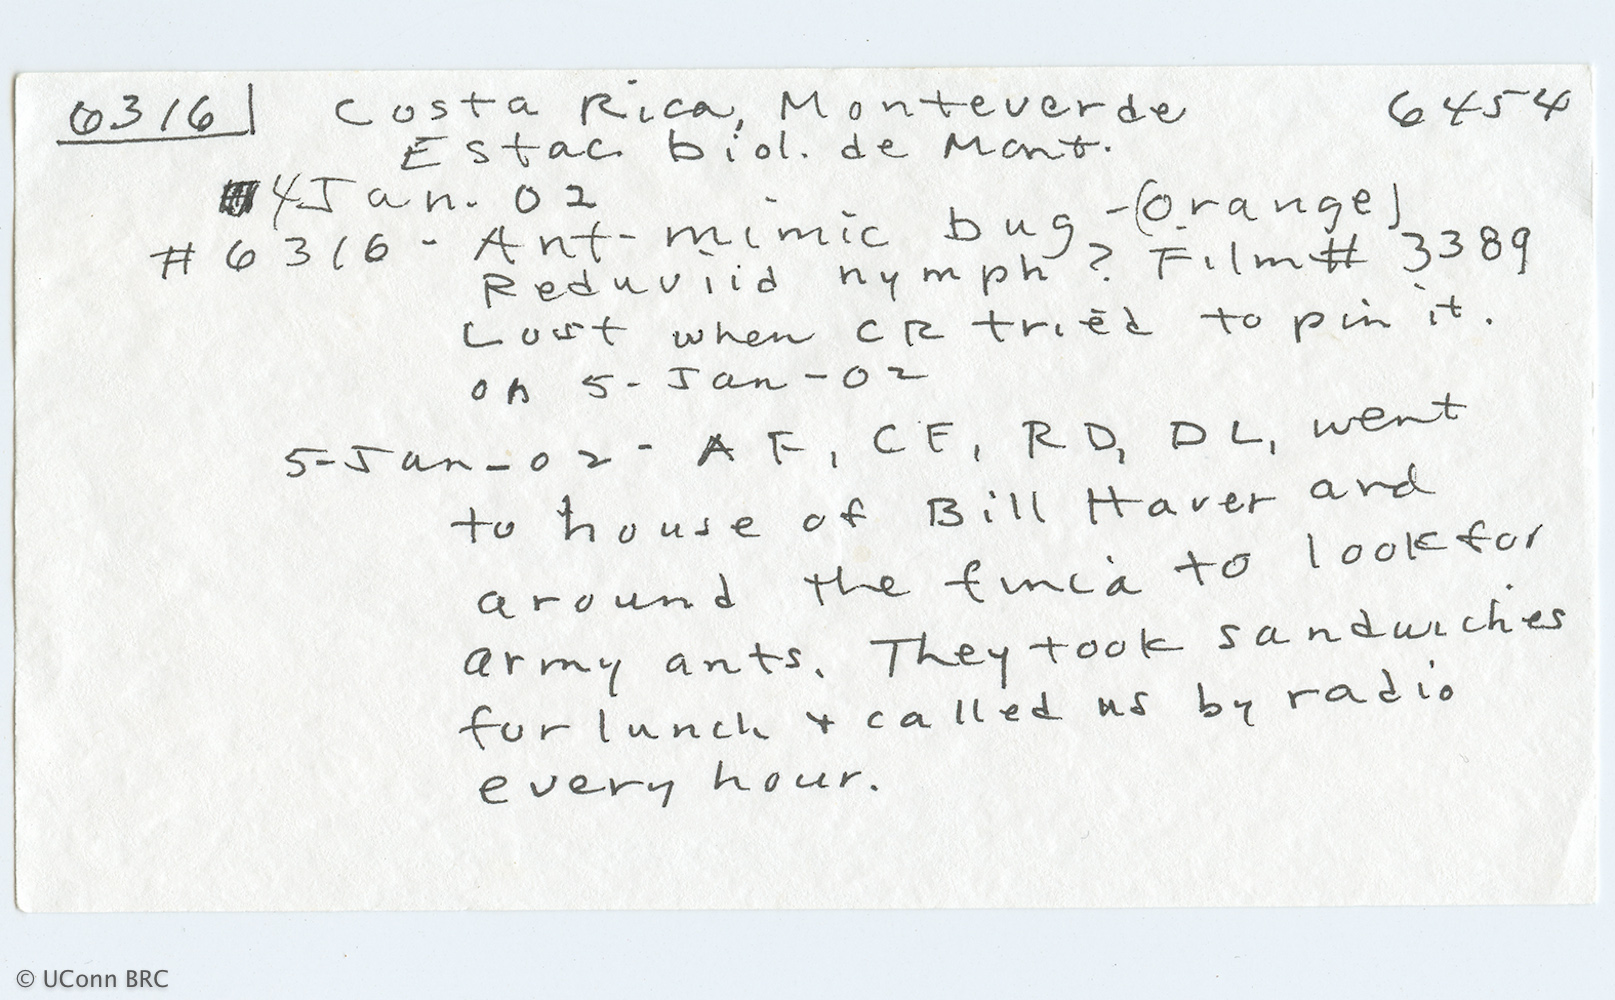 6316 Costa Rica, Monteverde 6454
Estac. biol. de Mont.
4 Jan. 02
#6316 - Ant-mimic bug - (orange)
Reduviid nymph? Film# 3389
Lost when CR tried to pin it.
on 5-Jan-02
5-Jan-02 - AF, CF, RD, DL, went
to house of Bill Haver and
around the finca to look for
army ants. They took sandwiches
for lunch + called us by radio
every hour.
© UConn BRC